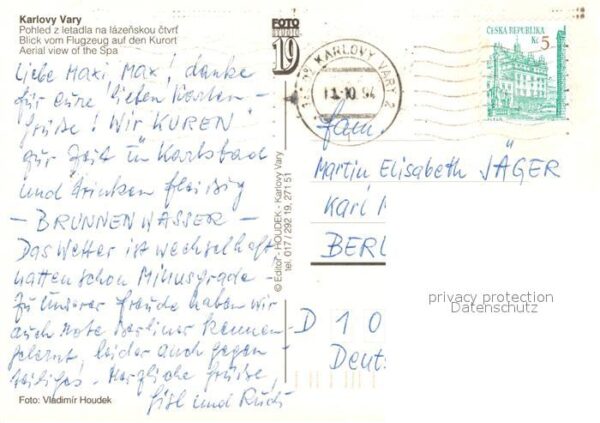 Karlovy Vary
Pohled z letadla na lázeňskou čtvrť
Blick vom Flugzeug auf den Kurort
Aerial view of the Spa
Liebe Maxi, Max! danke
für eure lieben Karten-
grüße! Wir KUREN
zur Zeit in Karlsbad
und trinken fleißig
- BRUNNENWASSER -
Das Wetter ist wechselhaft
hatten schon Minusgrade -
zu unserer Freude haben wir
auch note Berliner kennen-
gelernt, leider auch gegen-
teiliges - Herzliche Grüße,
und Rudi
Foto: Vladimír Houdek
FOTO
STUDIO
19
© Editor - HOUDEK - Karlovy Vary
tel. 017 / 292 19, 271 51
KARLOVY VARY 2
ČESKÁ REPUBLIKA
Kč 5
Fam.
Martin Elisabeth JÄGER
Karl
BERL
D 10
Deut
privacy protection
Datenschutz